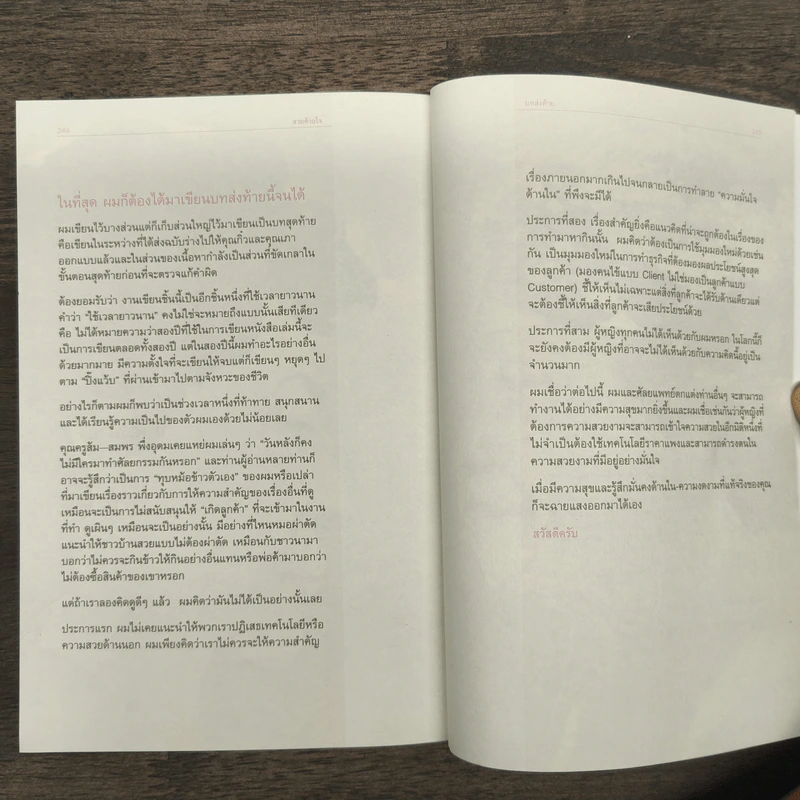 สวยด้วยใจ
ในที่สุด ผมก็ต้องได้มาเขียนบทส่งท้ายนี้จนได้
ผมเขียนไว้บางส่วนแต่ก็เก็บส่วนใหญ่ไว้มาเขียนเป็นบทสุดท้าย
คือเขียนในระหว่างที่ได้ส่งฉบับร่างไปให้คุณกิ๋วและคุณเภา
ออกแบบแล้วและในส่วนของเนื้อหากำลังเป็นส่วนที่ขัดเกลาใน
ขั้นตอนสุดท้ายก่อนที่จะตรวจแก้คำผิด
ต้องยอมรับว่า งานเขียนชิ้นนี้เป็นอีกชิ้นหนึ่งที่ใช้เวลายาวนาน
คำว่า “ใช้เวลายาวนาน” คงไม่ใช่จะหมายถึงแบบนั้นเสียทีเดียว
คือ ไม่ได้หมายความว่าสองปีที่ใช้ในการเขียนหนังสือเล่มนี้จะ
เป็นการเขียนตลอดทั้งสองปี แต่ในสองปีนี้ผมทำอะไรอย่างอื่น
ด้วยมากมาย มีความตั้งใจที่จะเขียนให้จบแต่ก็เขียนๆ หยุดๆ ไป
ตาม “ปิ๊งแว้บ” ที่ผ่านเข้ามาไปตามจังหวะของชีวิต
อย่างไรก็ตามผมก็พบว่าเป็นช่วงเวลาหนึ่งที่ท้าทาย สนุกสนาน
และได้เรียนรู้ความเป็นไปของตัวผมเองด้วยไม่น้อยเลย
คุณครูส้ม—สมพร พึ่งอุดมเคยแหย่ผมเล่นๆ ว่า “วันหลังก็คง
ไม่มีใครมาทำศัลยกรรมกันหรอก” และท่านผู้อ่านหลายท่านก็
อาจจะรู้สึกว่าเป็นการ “ทุบหม้อข้าวตัวเอง” ของผมหรือเปล่า
ที่มาเขียนเรื่องราวเกี่ยวกับการให้ความสำคัญของเรื่องอื่นที่ดู
เหมือนจะเป็นการไม่สนับสนุนให้ “เกิดลูกค้า” ที่จะเข้ามาในงาน
ที่ทำ ดูเผินๆ เหมือนจะเป็นอย่างนั้น มีอย่างที่ไหนหมอผ่าตัด
แนะนำให้ชาวบ้านสวยแบบไม่ต้องผ่าตัด เหมือนกับชาวนามา
บอกว่าไม่ควรจะกินข้าวให้กินอย่างอื่นแทนหรือพ่อค้ามาบอกว่า
ไม่ต้องซื้อสินค้าของเขาหรอก
แต่ถ้าเราลองคิดดูดีๆ แล้ว ผมคิดว่ามันไม่ได้เป็นอย่างนั้นเลย
ประการแรก ผมไม่เคยแนะนำให้พวกเราปฏิเสธเทคโนโลยีหรือ
ความสวยด้านนอก ผมเพียงคิดว่าเราไม่ควรจะให้ความสำคัญ
บทส่งท้าย
เรื่องภายนอกมากเกินไปจนกลายเป็นการทำลาย “ความมั่นใจ
ด้านใน” ที่พึงจะมีได้
ประการที่สอง เรื่องสำคัญยิ่งคือแนวคิดที่น่าจะถูกต้องในเรื่องของ
การทำมาหากินนั้น ผมคิดว่าต้องเป็นการใช้มุมมองใหม่ด้วยเช่น
กัน เป็นมุมมองใหม่ในการทำธุรกิจที่ต้องมองผลประโยชน์สูงสุด
ของลูกค้า (มองคนไข้แบบ Client ไม่ใช่มองเป็นลูกค้าแบบ
Customer) ชี้ให้เห็นไม่เฉพาะแต่สิ่งที่ลูกค้าจะได้รับด้านเดียวแต่
จะต้องชี้ให้เห็นสิ่งที่ลูกค้าจะเสียประโยชน์ด้วย
ประการที่สาม ผู้หญิงทุกคนไม่ได้เห็นด้วยกับผมหรอก ในโลกนี้ก็
จะยังคงต้องมีผู้หญิงที่อาจจะไม่ได้เห็นด้วยกับความคิดนี้อยู่เป็น
จำนวนมาก
ผมเชื่อว่าต่อไปนี้ ผมและศัลยแพทย์ตกแต่งท่านอื่นๆ จะสามารถ
ทำงานได้อย่างมีความสุขมากยิ่งขึ้นและผมเชื่อเช่นกันว่าผู้หญิงที่
ต้องการความสวยงามจะสามารถเข้าใจความสวยในอีกมิติหนึ่งที่
ไม่จำเป็นต้องใช้เทคโนโลยีราคาแพงและสามารถดำรงตนใน
ความสวยงามที่มีอยู่อย่างมั่นใจ
เมื่อมีความสุขและรู้สึกมั่นคงด้านใน-ความงดงามที่แท้จริงของคุณ
ก็จะฉายแสงออกมาได้เอง
สวัสดีครับ